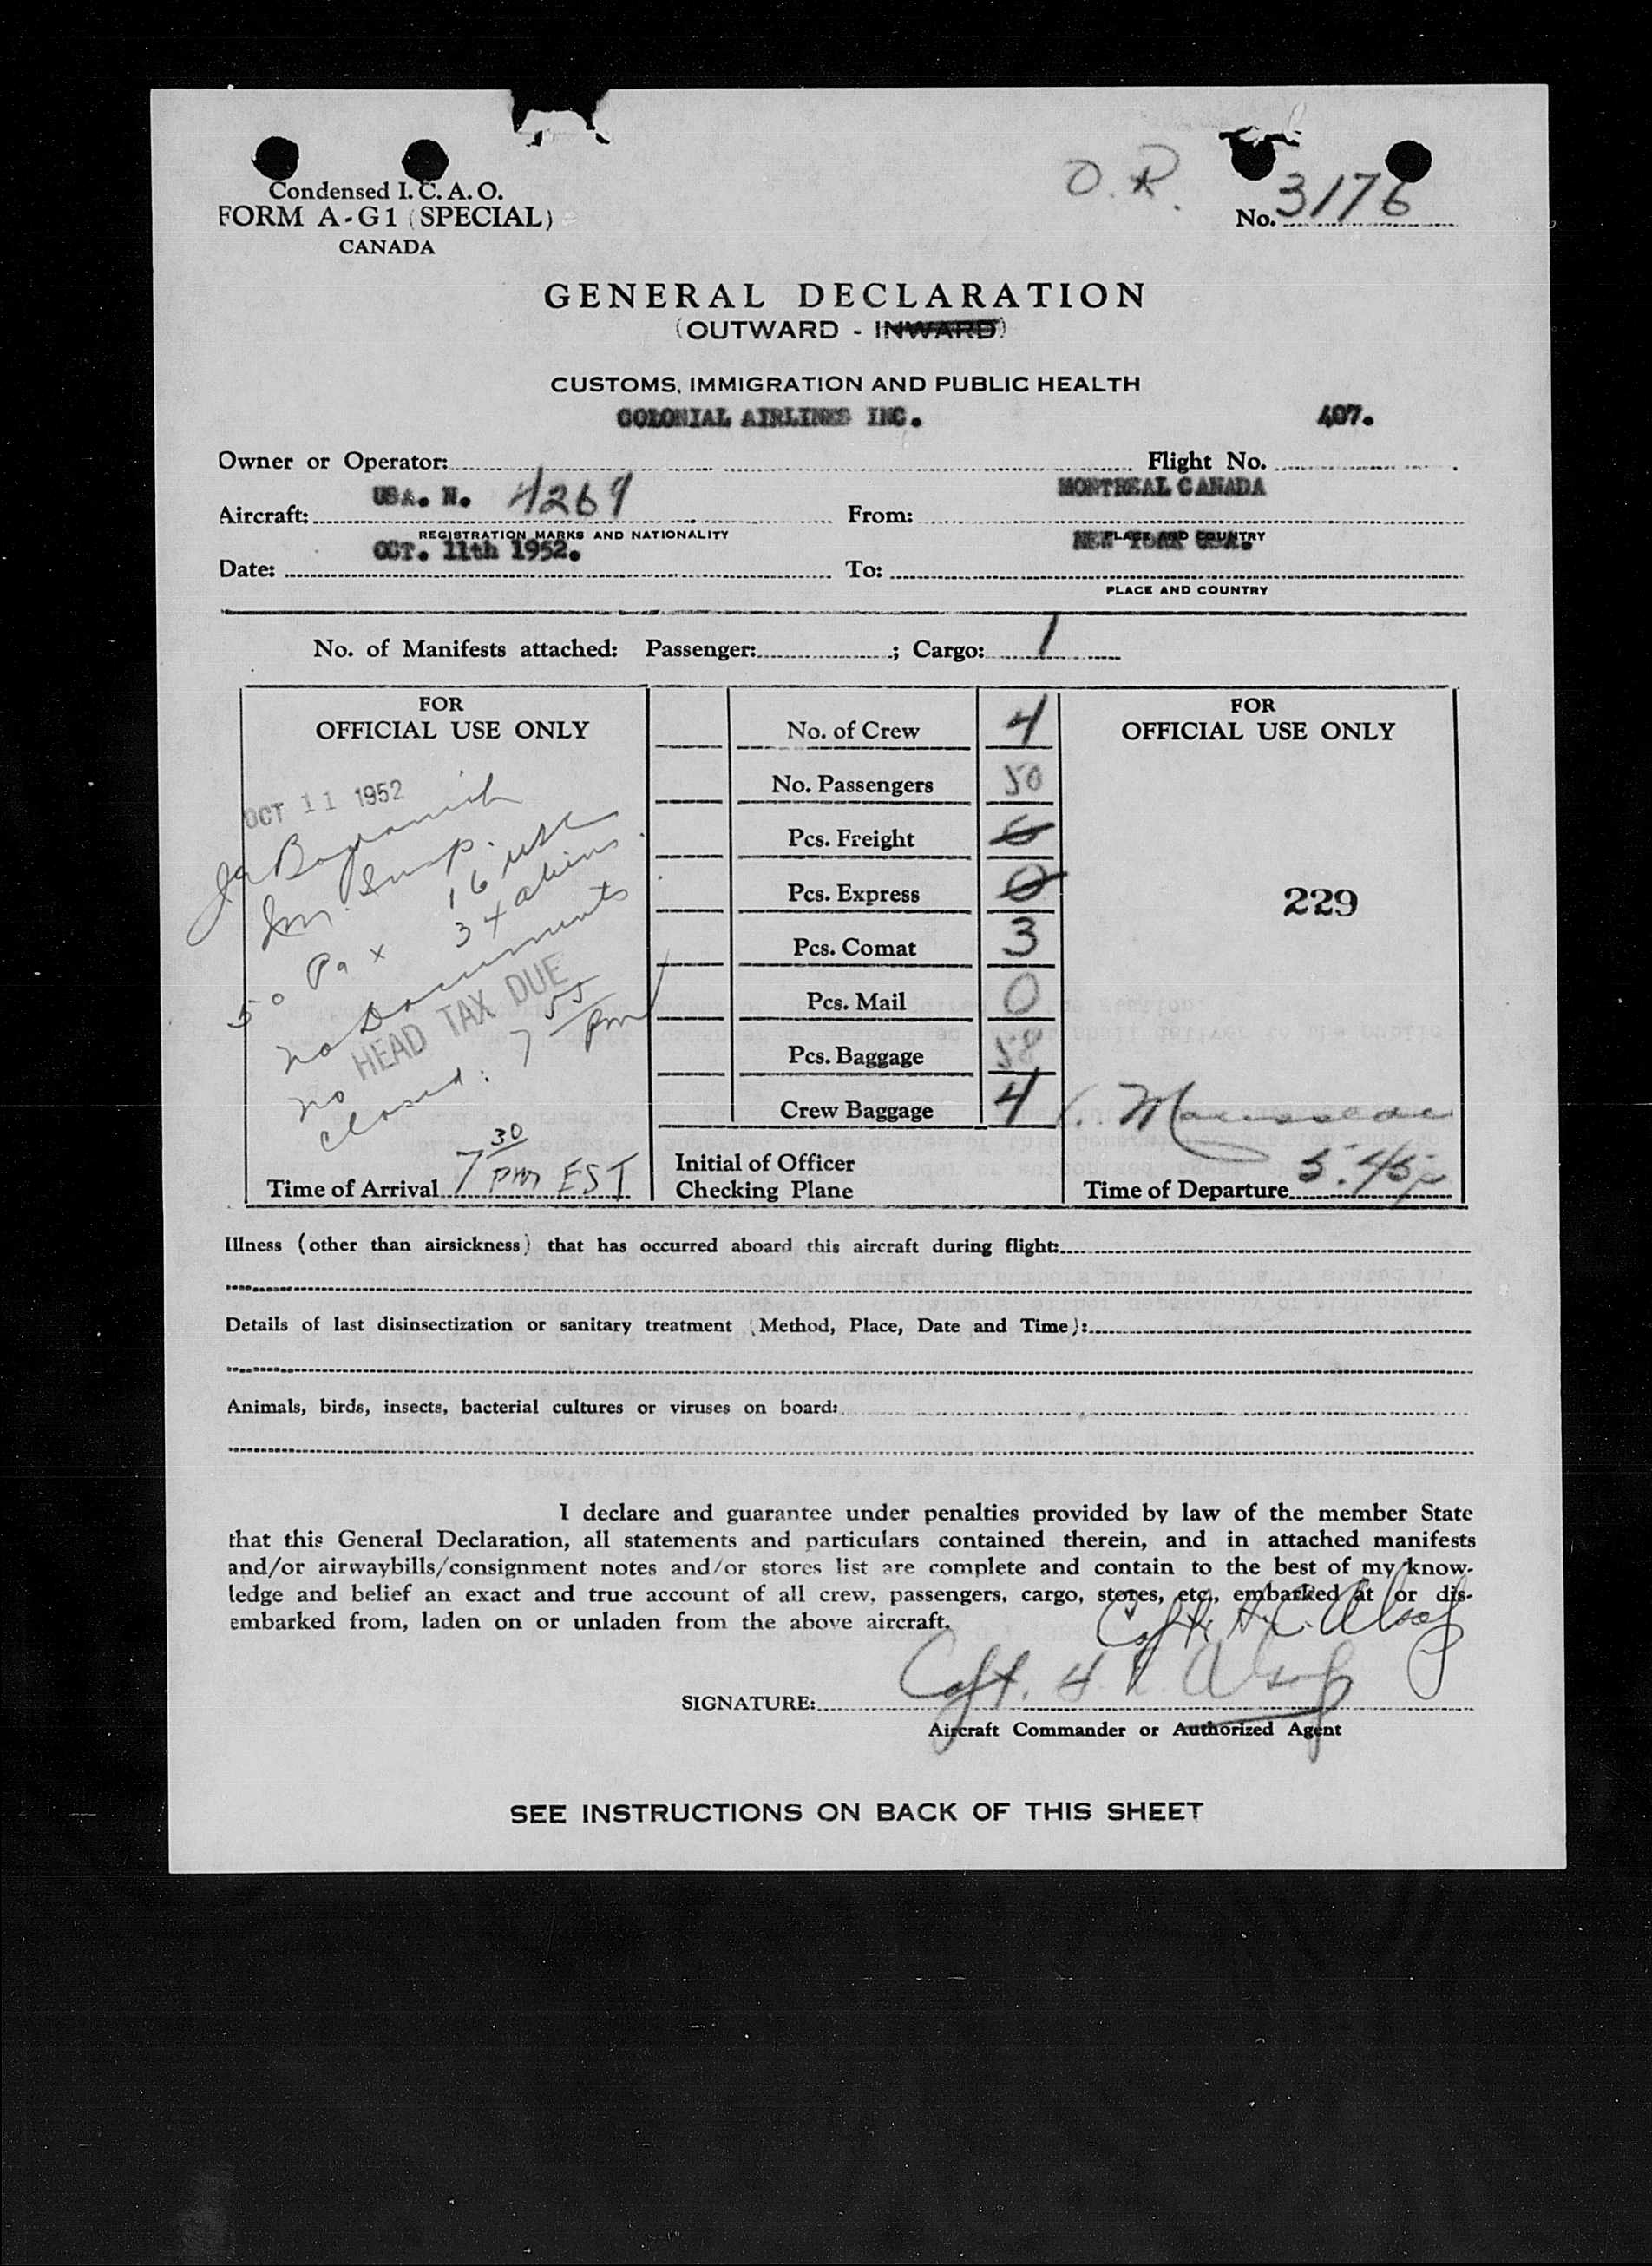 Condensed I.C.A.O.
FORM A-G1 (SPECIAL)
CANADA
O.R.
No. 3176
GENERAL DECLARATION
(OUTWARD - INWARD)
CUSTOMS, IMMIGRATION AND PUBLIC HEALTH
COLONIAL AIRLINES INC. 407.
Owner or Operator: Flight No.
USA. N. 4269 MONTREAL CANADA
Aircraft: From:
REGISTRATION MARKS AND NATIONALITY PLACE AND COUNTRY
OCT. 11th 1952. NEW YORK USA.
Date: To:
PLACE AND COUNTRY
No. of Manifests attached: Passenger: ; Cargo: 1
FOR
OFFICIAL USE ONLY
OCT 11 1952
Im. Insp.
16 USC
50 Pax 34 aliens.
no Documents
no HEAD TAX DUE
closed: 7 55 pm
Time of Arrival 7 30 pm EST
No. of Crew 4
No. Passengers 50
Pcs. Freight 0
Pcs. Express 0
Pcs. Comat 3
Pcs. Mail 0
Pcs. Baggage 58
Crew Baggage 4
Initial of Officer
Checking Plane
FOR
OFFICIAL USE ONLY
229
Mousseau
Time of Departure 5:45p
Illness (other than airsickness) that has occurred aboard this aircraft during flight:
Details of last disinsectization or sanitary treatment (Method, Place, Date and Time):
Animals, birds, insects, bacterial cultures or viruses on board:
I declare and guarantee under penalties provided by law of the member State
that this General Declaration, all statements and particulars contained therein, and in attached manifests
and/or airwaybills/consignment notes and/or stores list are complete and contain to the best of my know-
ledge and belief an exact and true account of all crew, passengers, cargo, stores, etc., embarked at or dis-
embarked from, laden on or unladen from the above aircraft.
Capt. H.C. Alsop
SIGNATURE: Capt. H.C. Alsop
Aircraft Commander or Authorized Agent
SEE INSTRUCTIONS ON BACK OF THIS SHEET